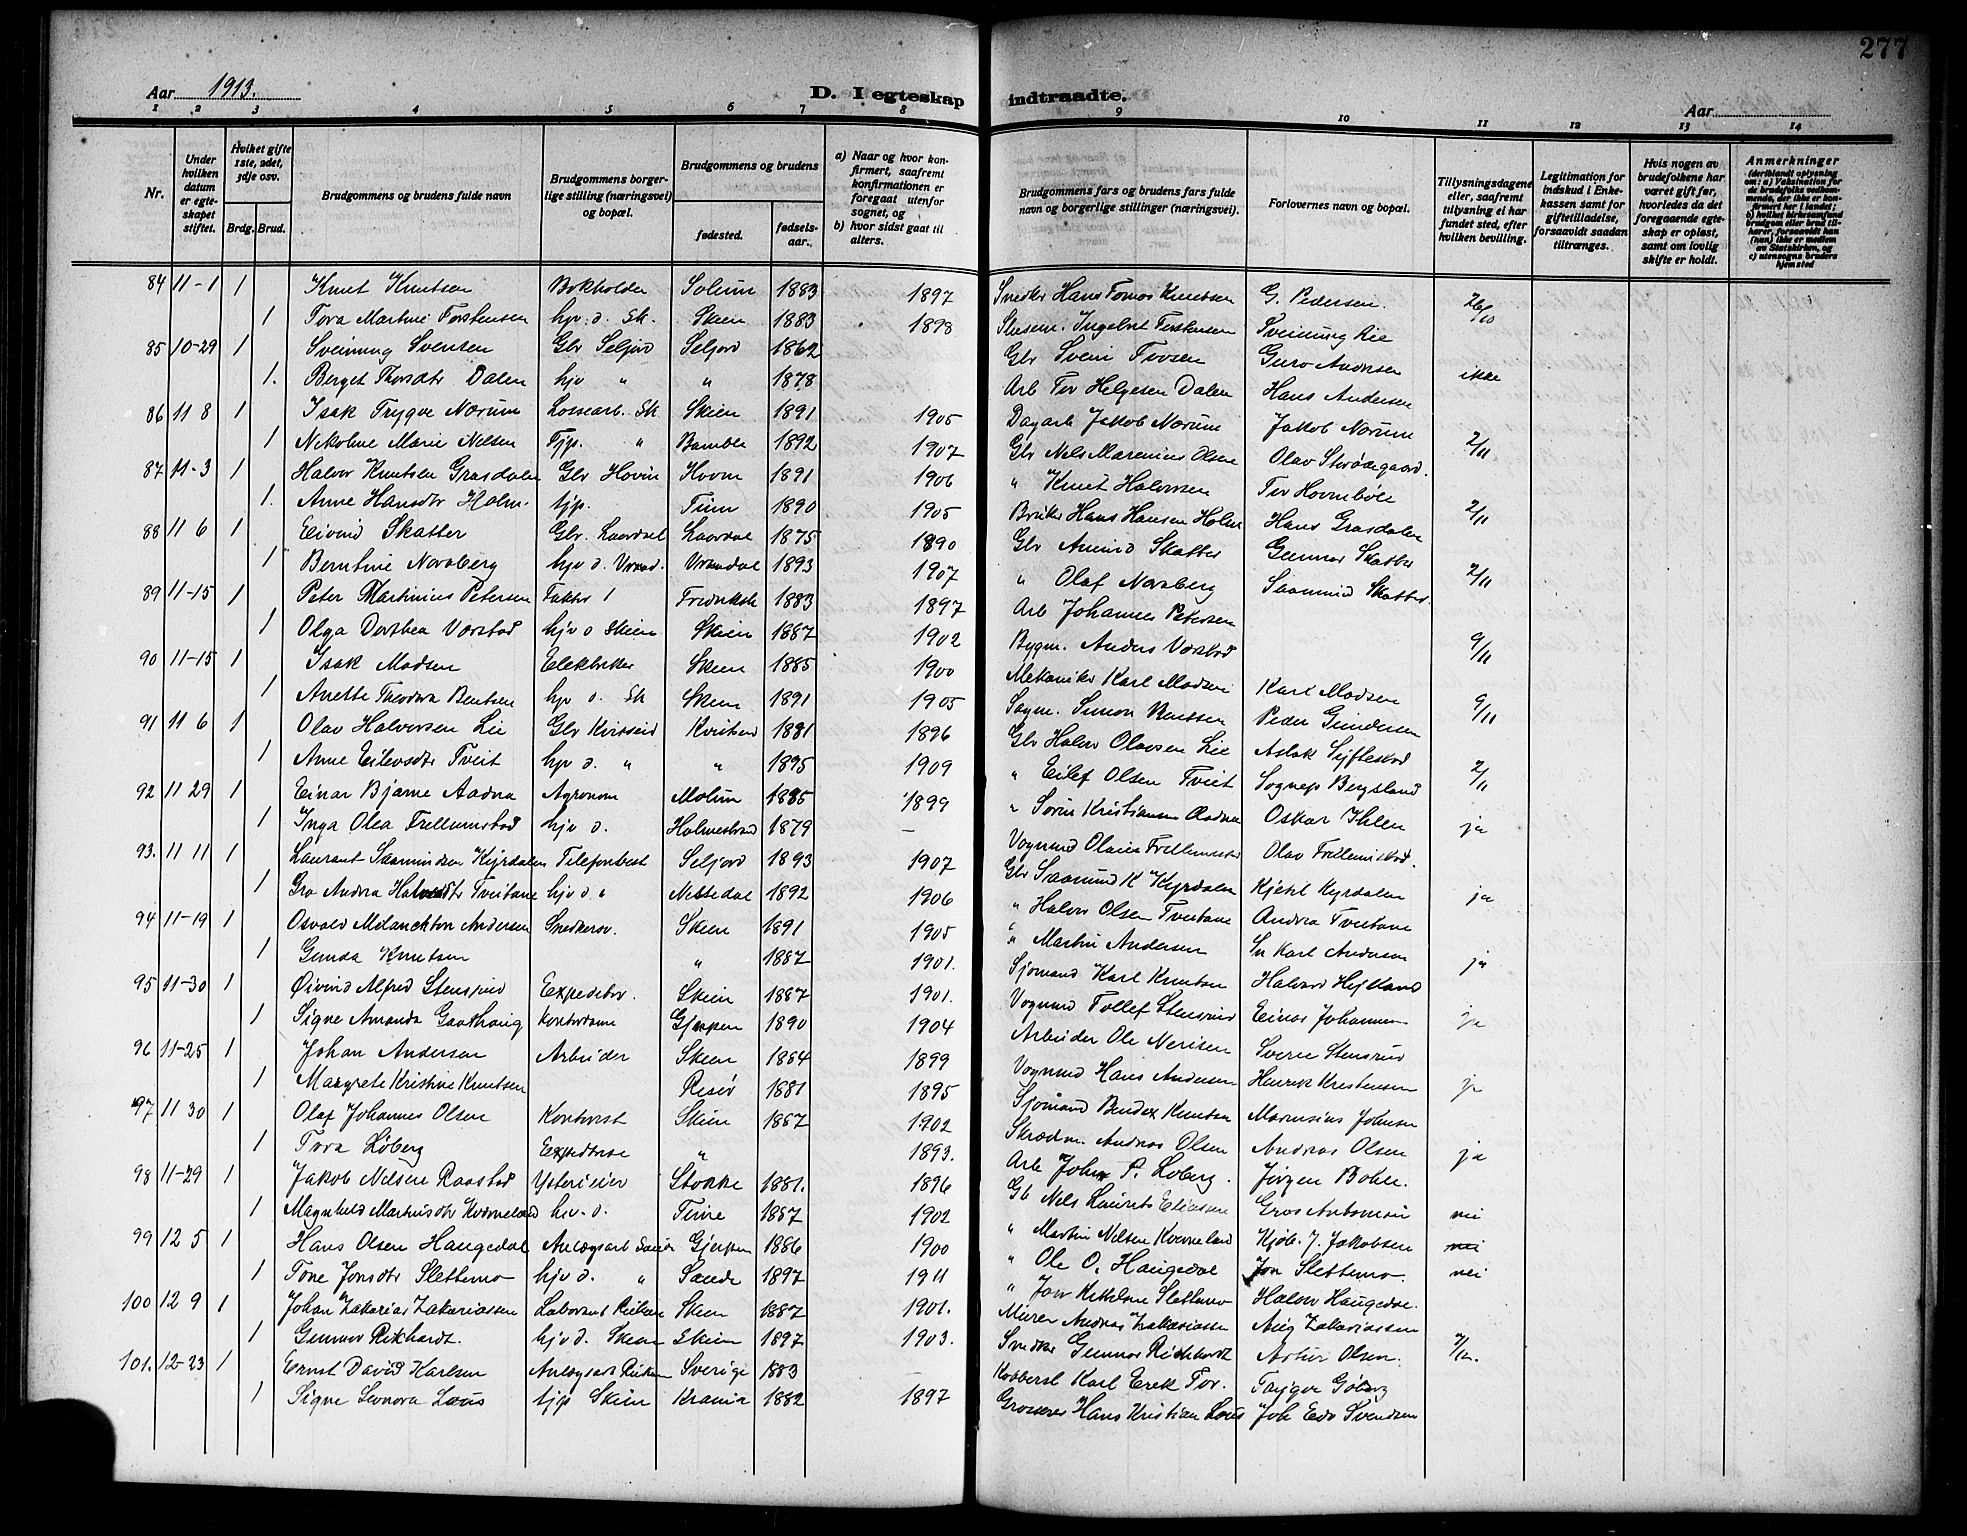 277
Aar 1913.
D. I egteskap indtraadte.
Aar
1 2 3 4 5 6 7 8 9 10 11 12 13 14
Nr.
Under hvilken datum er egteskapet stiftet.
Hvilket gifte 1ste, 2det, 3dje osv.
Brdg. Brud.
Brudgommens og brudens fulde navn
Brudgommens borgerlige stilling (næringsvei) og bopæl.
Brudgommens og brudens
fødested.
fødselsaar.
a) Naar og hvor konfirmert, saafremt konfirmationen er foregaat utenfor sognet, og
b) hvor sidst gaat til alters.
Brudgommens fars og brudens fars fulde navn og borgerlige stillinger (næringsvei).
Forlovernes navn og bopæl.
Tillysningsdagene eller, saafremt tillysning ei har fundet sted, efter hvilken bevilling.
Legitimation for indskud i Enkekassen samt for giftetilladelse, forsaavidt saadan tiltrænges.
Hvis nogen av brudefolkene har været gift før, hvorledes da det foregaaende egteskap er opløst, samt om lovlig skifte er holdt.
Anmerkninger (deriblandt oplysning om: a) Vaksination for de brudefolks vedkommende, der ikke er konfirmert her i landet; b) hvilket kirkesamfund brudgom eller brud tilhører, forsaavidt han (hun) ikke er medlem av Statskirken, og c) utensogns bruders hjemsted
84 11-1 1 Knut Knutsen Bokholder Solum 1883 1897 Snedker Hans Tomas Knutsen G. Pedersen. 26/10
1 Tora Martine Torstensen hjv. d. Sk. Skien 1883 1898 Ingebret Torstensen Sveinung Lie
85 10-29 1 Sveinung Svensen Gbr Seljord Seljord 1862 Gbr Svein Tovsen Guro Andersen ikke
1. Berget Thorsdtr Dalen hjv " " 1878 Arb Tor Helgesen Dalen Hans Andersen
86 11 8 1 Isak Trygve Nærum Lossearb. Sk Skien 1891 1905 Dagarb Jakob Nærum Jakob Nærum 2/11
1 Nikoline Marie Nilsen Tjp. " Bamble 1892 1907 Gbr Nils Marenius Olsen Olav
87 11-3 1 Halvor Knutsen Grasdalen Gbr Hovin Hovin 1891 1906 " Knut Halvorsen Tor Hovinbøle 2/11
1. Anne Hansdtr Holm. tjp. Tinn 1890 1905 Bruker Hans Hansen Holm Hans Grasdalen
88 11 6 1 Eivind Skatter Gbr. Laardal Laardal 1875 1890 Gbr Amund Skatter Gunnar Skatter 2/11
1 Berntine Norsberg hjv d. Vraad. Vraadal 1893 1907 " Olaf Norsberg Saamund Skatter.
89 11-15 1 Peter Martinius Petersen Faktor 1 Fredriksh 1883 1897 Arb Johannes Petersen 9/11
1 Olga Dorthea Værstad hjv d Skien Skien 1887 1902 Bygm. Anders Værstad
90 11-15 1 Isak Madsen Elektriker Skien 1885 1900 Mekaniker Karl Madsen Karl Madsen 9/11
1 Anette Theodora Bentsen hjv d. Sk Skien 1891 1905 Sagm. Simon Bentsen Peder Gundersen
91 11 6 1 Olav Halvorsen Lie Gbr Kviteseid Kviteseid 1881 1896 Gbr Halvor Olavsen Lie Aslak Syftestad 2/11
1 Anne Eilevsdtr Tveit hjv d. " " 1895 1909 " Eilef Olsen Tveit Sognep Bergsland
92 11 29 1 Einar Bjarne Aadna Agronom Molum 1885 1899 " Søren Kristiansen Aadna Oskar Ihlen ja
1 Inga Olea Frellumstad hjv d. Holmestrand 1879 - Vognmd Olaves Frellumstad Olav Frellumstad.
93. 11 11 1 Laurant Saamundsen Kyrdalen Telefonbest Seljord 1893 1907 Gbr Saamund K Kyrdalen Kjetil Kyrdalen ja
1 Gro Andrea Halvorsdtr Tveitane hjv d " Nissedal 1892 1906 " Halvor Olsen Tveitane Andrea Tveitane
94 11-19 1 Osvald Melanckton Andersen Snedkersv. Skien 1891 1905 " Martin Andersen Sn Karl Andersen ja
1 Gunda Knutsen " 1887 1901. Sjømand Karl Knutsen Halvard Hejkland
95 11-30 1 Øivind Alfred Stensrud Expeditør. Skien 1887 1901. Vognmd Tollef Stensrud Einar Johannesen ja
1 Signe Amanda Gaathaug Kontordame Gjerpen 1890 1904 Arbeider Ole Nerisen Sverre Stensrud
96 11-25 1 Johan Andersen Arbeider Skien 1884 1899 Vognmd Hans Andersen Henrik Kristensen ja
1 Margrete Kristine Knutsen Risør 1881 1895 Sjømand Bendix Knutsen Marensius Johnsen
97 11 30 1 Olaf Johannes Olsen Kontorist Skien 1887 1902 Skrædm. Andreas Olsen Andreas Olsen ja
1 Tora Løberg Expeditrise " 1893. Arb John P. Løberg. Jørgen Bohle.
98 11-29 1 Jakob Nilsen Raastad Ysterieier Stokke 1881. 1896 Gb Nils Laurits Eliassen nei
1 Magnhild Martinsdtr Kverneland hjv. d. Time 1887 1902 " Martin Nilsen Kverneland Kjøb. J. Jakobsen nei
99 12 5 1 Hans Olsen Haugedal Anlægsarb Gjerpen 1886 1900 " Ole O. Haugedal Jon Slettemo. nei
1 Tone Jonsdtr Slettemo hjv d. " Saude 1897 1911 " Jon Kittelsen Slettemo Halvor Haugedal.
100 12 9 1 Johan Zakarias Zakariassen Laborant Rjukan Skien 1887 1901. Murer Andreas Zakariassen Aug Zakariassen 7/12.
1 Gunvor Rikhardt. hjv d. Skien Skien 1897 1903. Snedker Gunnar Rickhardt Artur Olsen.
101. 12-23 1 Ernst David Karlsen Anlægsarb Rjukan Sverige 1883 - Kobbersl Karl Erek Tor. Trygve Goberg
1 Signe Leonora Lous tjp Skien Krania 1882 1897 Grosserer Hans Kristian Lous Joh Edv Svendsen